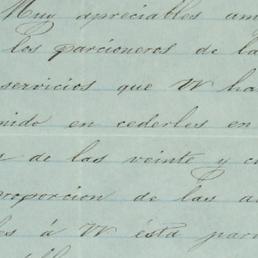 Muy apreciables am
los parcioneros de la
servicios que W ha
nido en cederles en
de las veinte y c
proporcion de las a
es á W ésta par